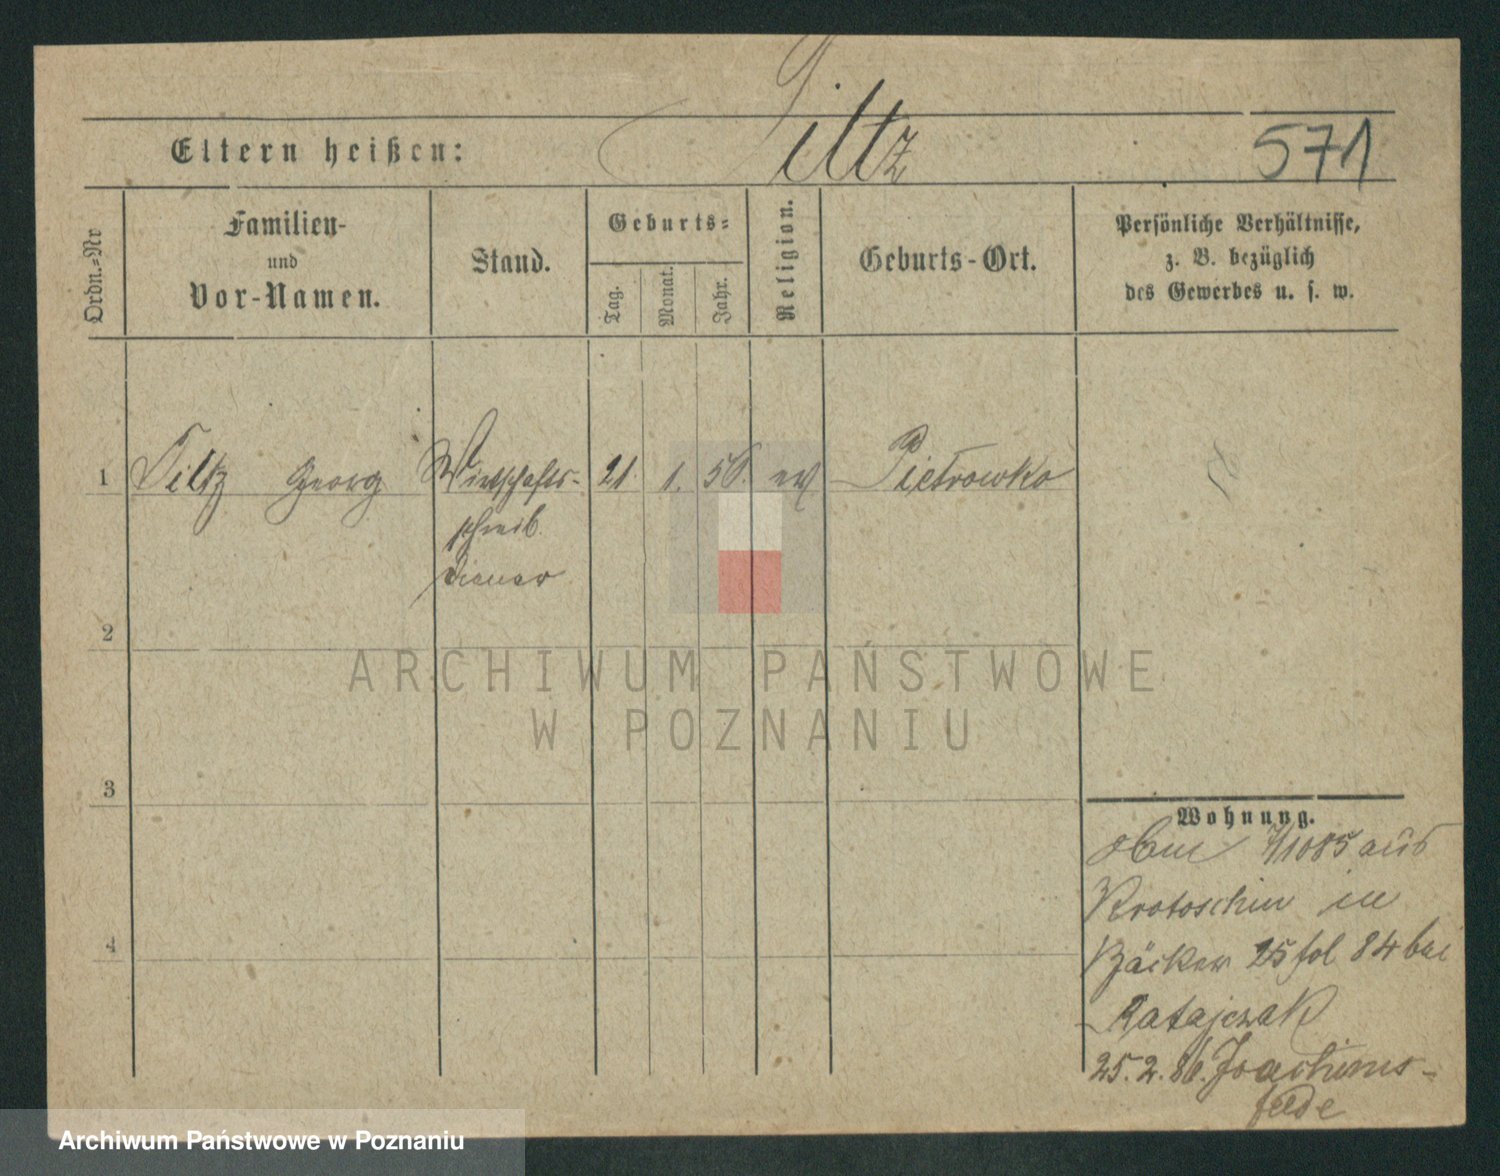 Tiltz
Eltern heißen:
571
Ordn.-Nr
Familien-
und
Vor-Namen.
Stand.
Geburts-
Tag.
Monat.
Jahr.
Religion.
Geburts-Ort.
Persönliche Verhältnisse,
z. B. bezüglich
des Gewerbes u. s. w.
1 Tiltz Georg Wirtschafts- 21. 1. 56. ev Pietrowko
schreib.
Diener
2
3
4
ARCHIWUM PAŃSTWOWE
W POZNANIU
Wohnung.
1085 aus
Krotoschin in
Bäcker 25 fol 84 bei
Ratajczak
25.2.86. Joachims-
felde
Archiwum Państwowe w Poznaniu